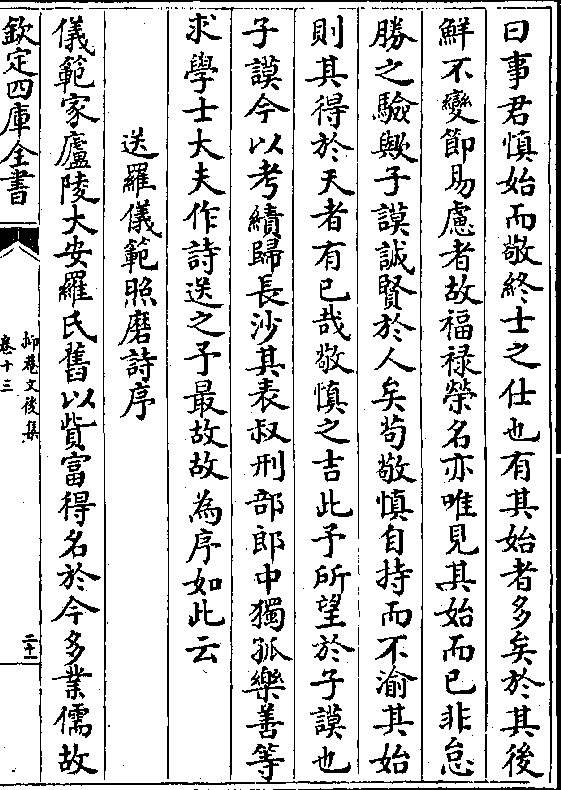 曰事君慎始而敬終士之仕也有其始者多矣於其後
鮮不變節易慮者故福祿榮名亦唯見其始而已非怠
勝之驗歟子謨誠賢於人矣茍敬慎自持而不渝其始
則其得於天者有已哉敬慎之吉此予所望於子謨也
子謨今以考績歸長沙其表叔刑部郎中獨孤樂善等
求學士大夫作詩送之予最故故為序如此云
送羅儀範照磨詩序
儀範家廬陵大安羅氏舊以貲富得名於今多業儒故
欽定四庫全書
抑菴文後集
卷十三
二十一